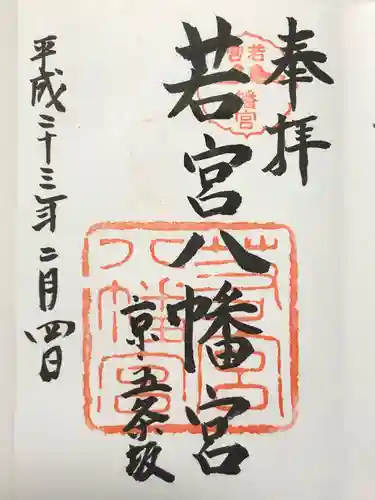 奉拝
若宮八幡宮
若宮八幡宮
若宮八幡宮
京・五条坂
平成二十三年二月四日